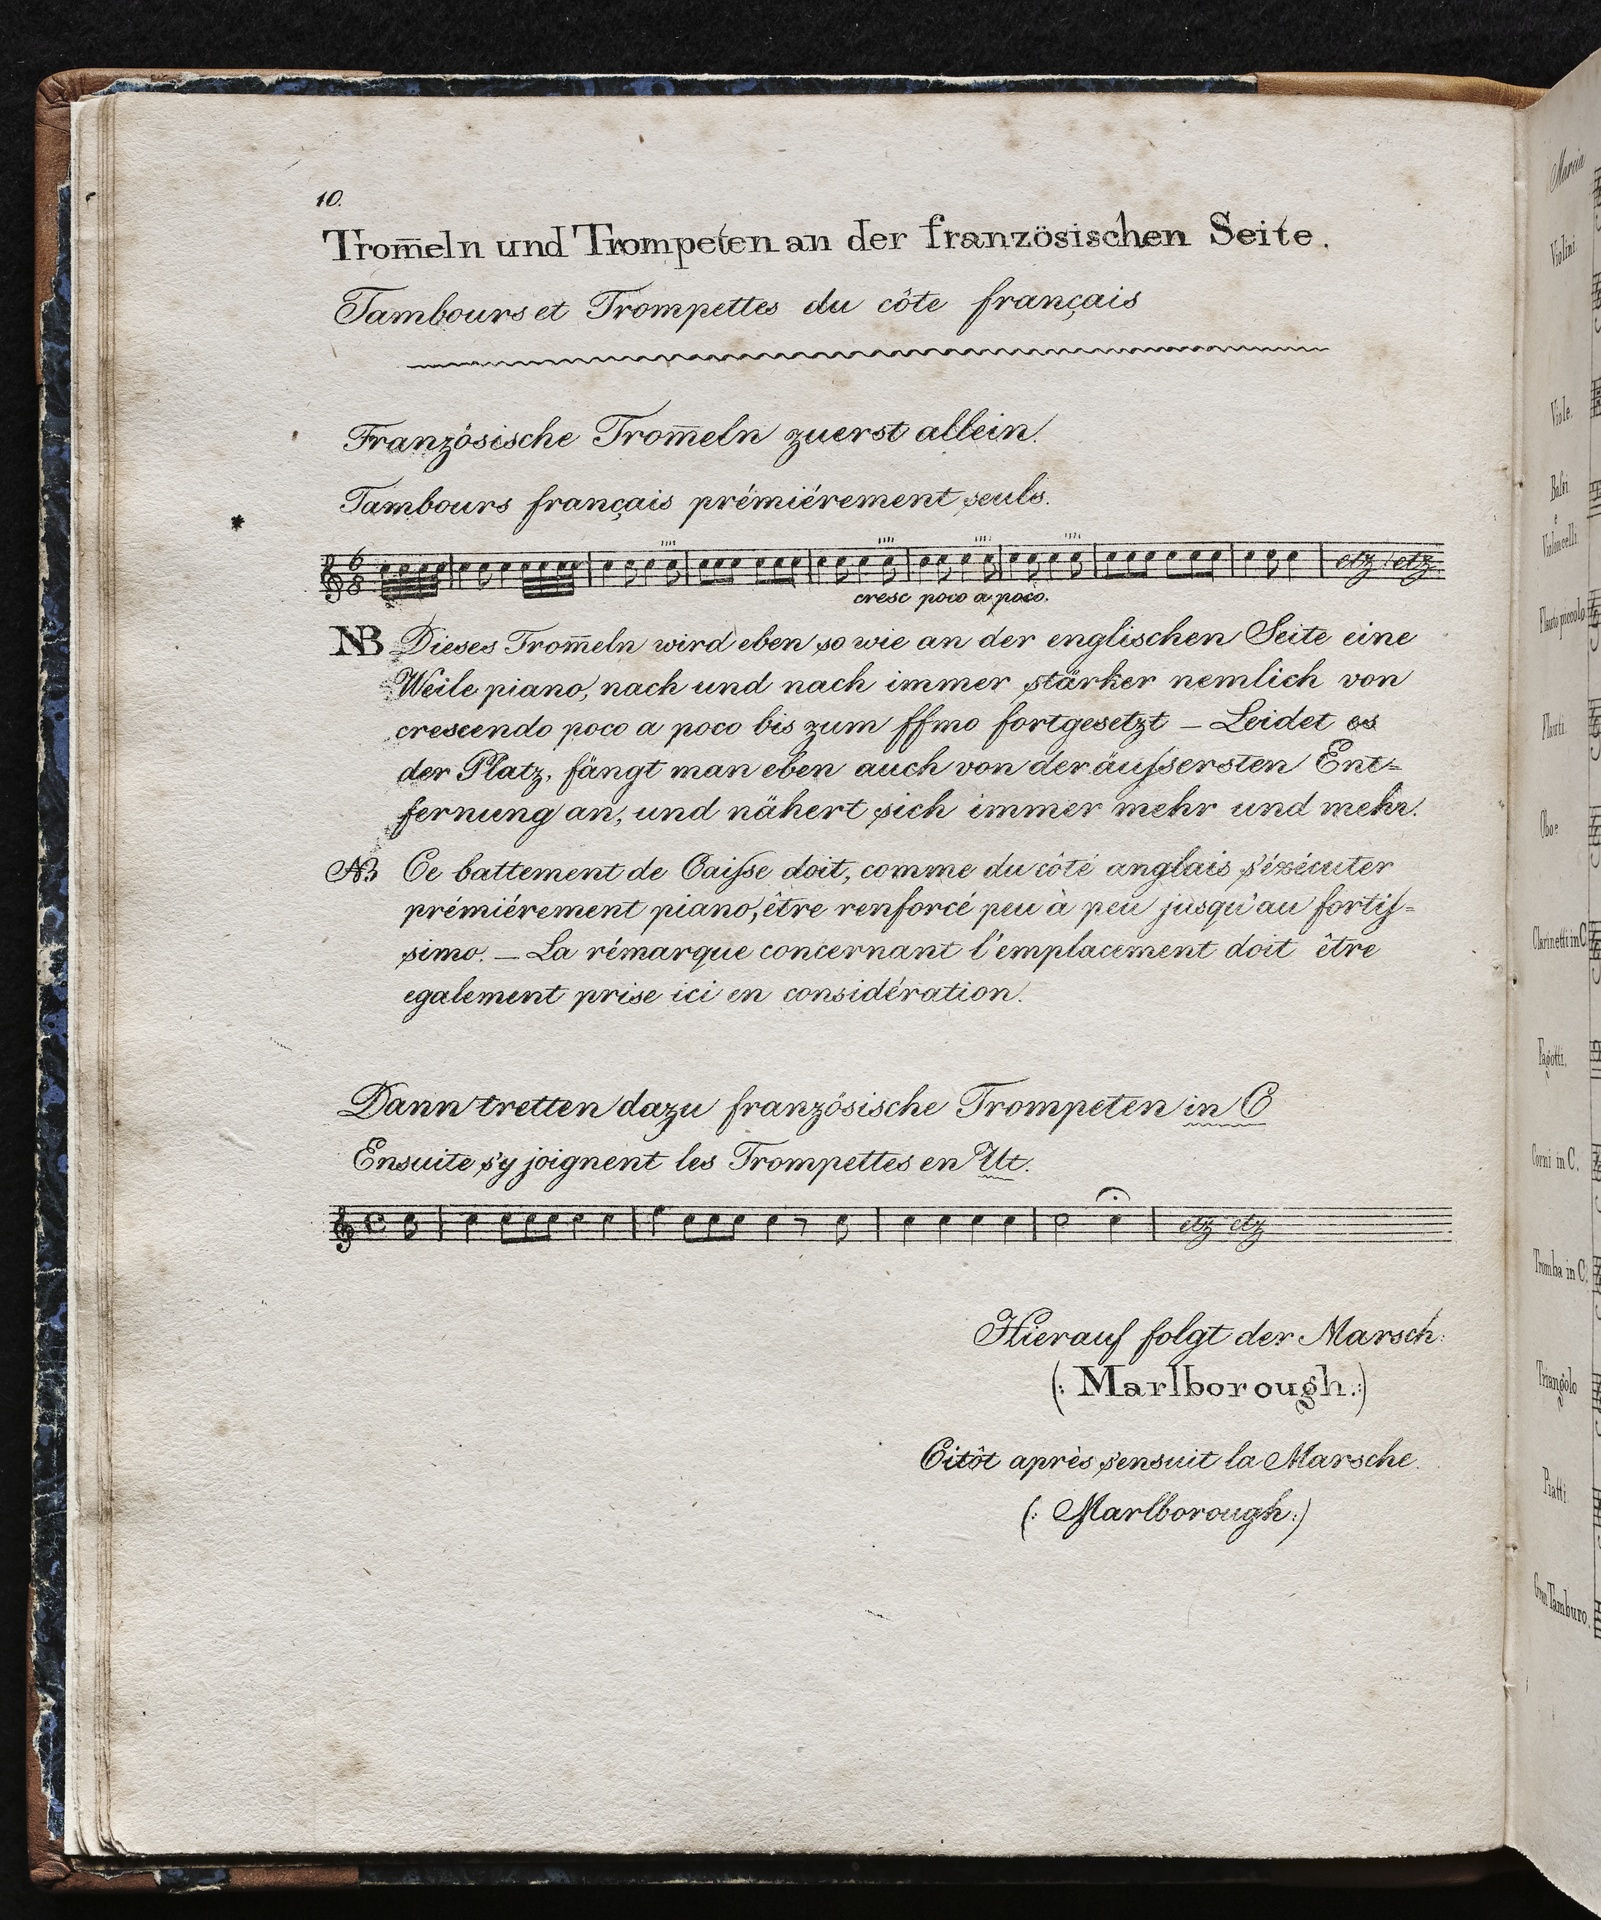 10.
Trom̅eln und Trompeten an der französischen Seite.
Tambours et Trompettes du côte français
Französische Trom̅eln zuerst allein.
Tambours français prémiérement seuls.
6
8
etz etz
cresc poco a poco.
NB Dieses Trom̅eln wird eben so wie an der englischen Seite eine
Weile piano, nach und nach immer stärker nemlich von
crescendo poco a poco bis zum ffmo fortgesetzt – Leidet es
der Platz, fängt man eben auch von der äuſsersten Ent=
fernung an, und nähert sich immer mehr und mehr.
NB Ce battement de Caiſse doit, comme du côté anglais s'éxécuter
prémiérement piano, être renforcé peu à peu jusqu'au fortiſ=
simo. – La rémarque concernant l'emplacement doit être
egalement prise ici en considération.
Dann tretten dazu französische Trompeten in C
Ensuite s'y joignent les Trompettes en Ut.
etz etz
Hierauf folgt der Marsch:
(: Marlborough.:)
Citôt après s'ensuit la Marsche.
(: Marlborough:)
Marcia
Violini
Viole.
Bassi
e
Violoncelli
Flauto piccolo
Flauti.
Oboe
Clarinetti in C
Fagotti.
Corni in C.
Tromba in C.
Triangolo
Piatti
Gran Tamburo.